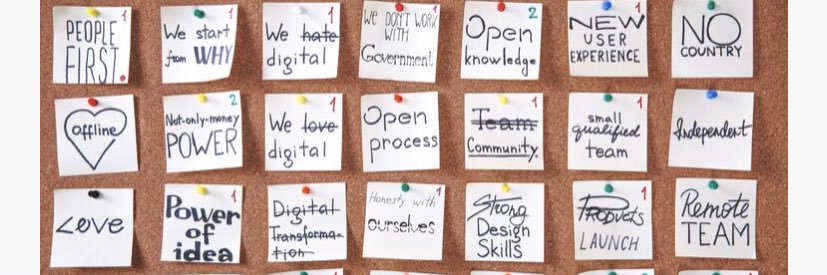 PEOPLE
FIRST.
1
We start
from WHY
1
We hate
digital
1
We DON'T WORK
WITH
Government
1
Open
knowledge
2
NEW
USER
EXPERIENCE
1
NO
COUNTRY
offline
Not-only-money
POWER
2
We love
digital
1
Open
process
Team
Community
1
small
qualified
team
1
Independent
Love
Power
of
idea
1
Digital
Transforma-
tion
Honesty with
ourselves
1
Strong
Design
Skills
Products
LAUNCH
1
Remote
TEAM